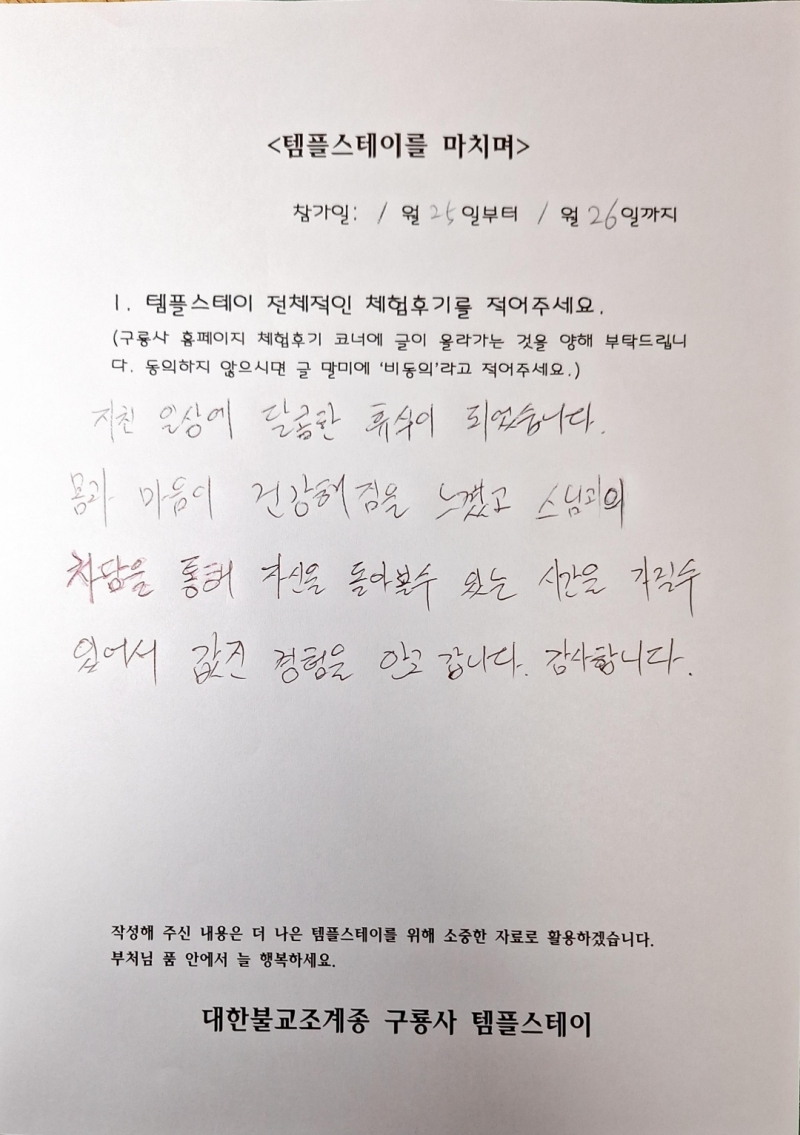 <템플스테이를 마치며>
참가일: 1 월 25일부터 1 월 26일까지
1. 템플스테이 전체적인 체험후기를 적어주세요.
(구룡사 홈페이지 체험후기 코너에 글이 올라가는 것을 양해 부탁드립니
다. 동의하지 않으시면 글 말미에 '비동의'라고 적어주세요.)
지친 일상에 달콤한 휴식이 되었습니다.
몸과 마음이 건강해짐을 느꼈고 스님과의
차담을 통해 자신을 돌아볼수 있는 시간을 가질수
있어서 값진 경험을 안고 갑니다. 감사합니다.
작성해 주신 내용은 더 나은 템플스테이를 위해 소중한 자료로 활용하겠습니다.
부처님 품 안에서 늘 행복하세요.
대한불교조계종 구룡사 템플스테이